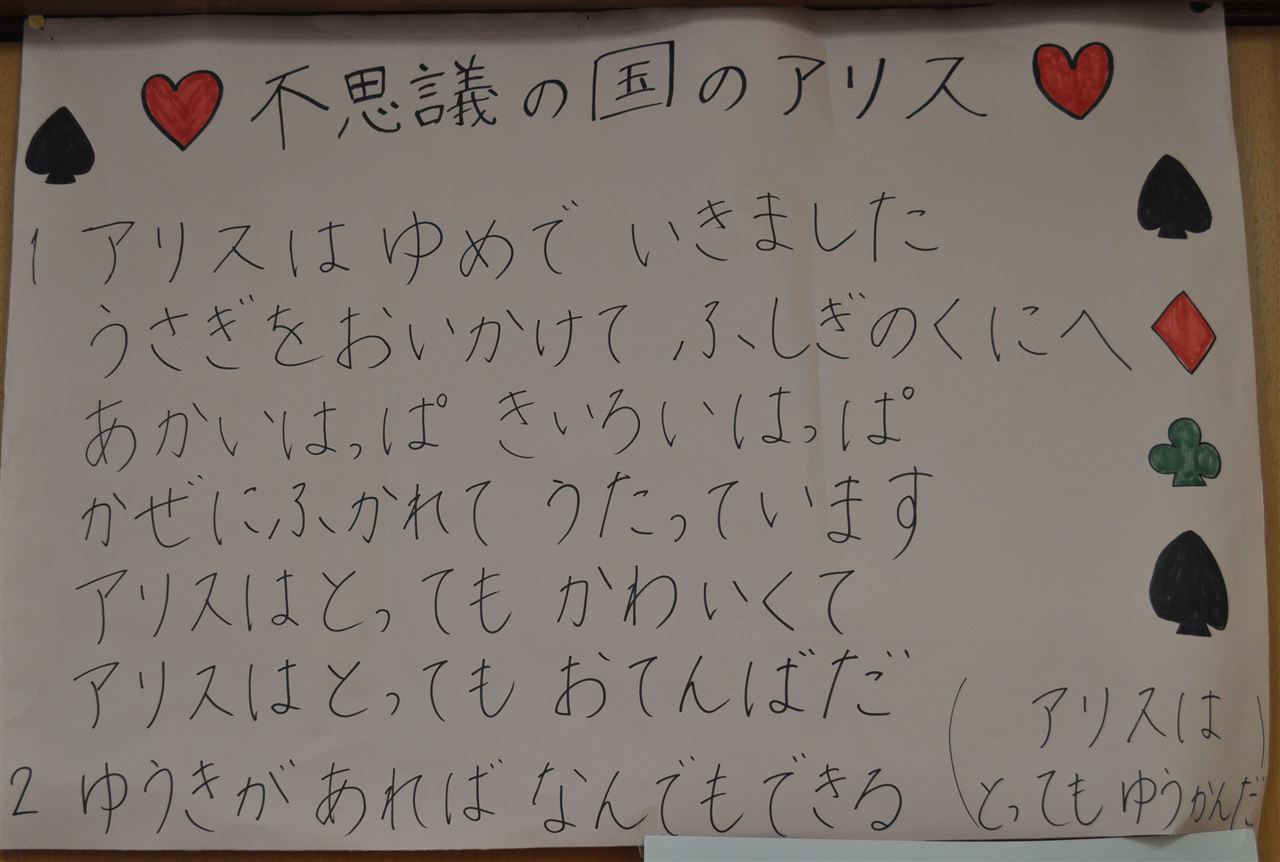 不思議の国のアリス
1 アリスはゆめで いきました
うさぎをおいかけて ふしぎのくにへ
あかいはっぱ きいろいはっぱ
かぜにふかれて うたっています
アリスはとっても かわいくて
アリスはとっても おてんばだ
2 ゆうきが あれば なんでもできる
(アリスは
とっても ゆうかんだ)